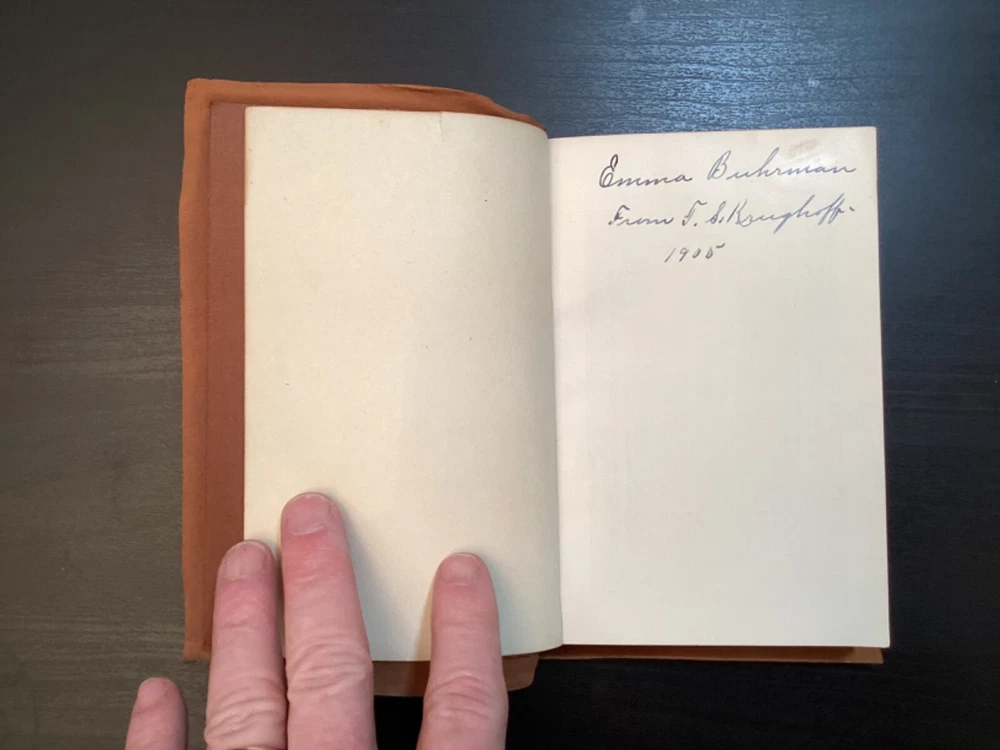 Emma Buhrman
From T. S. Krughoff.
1905